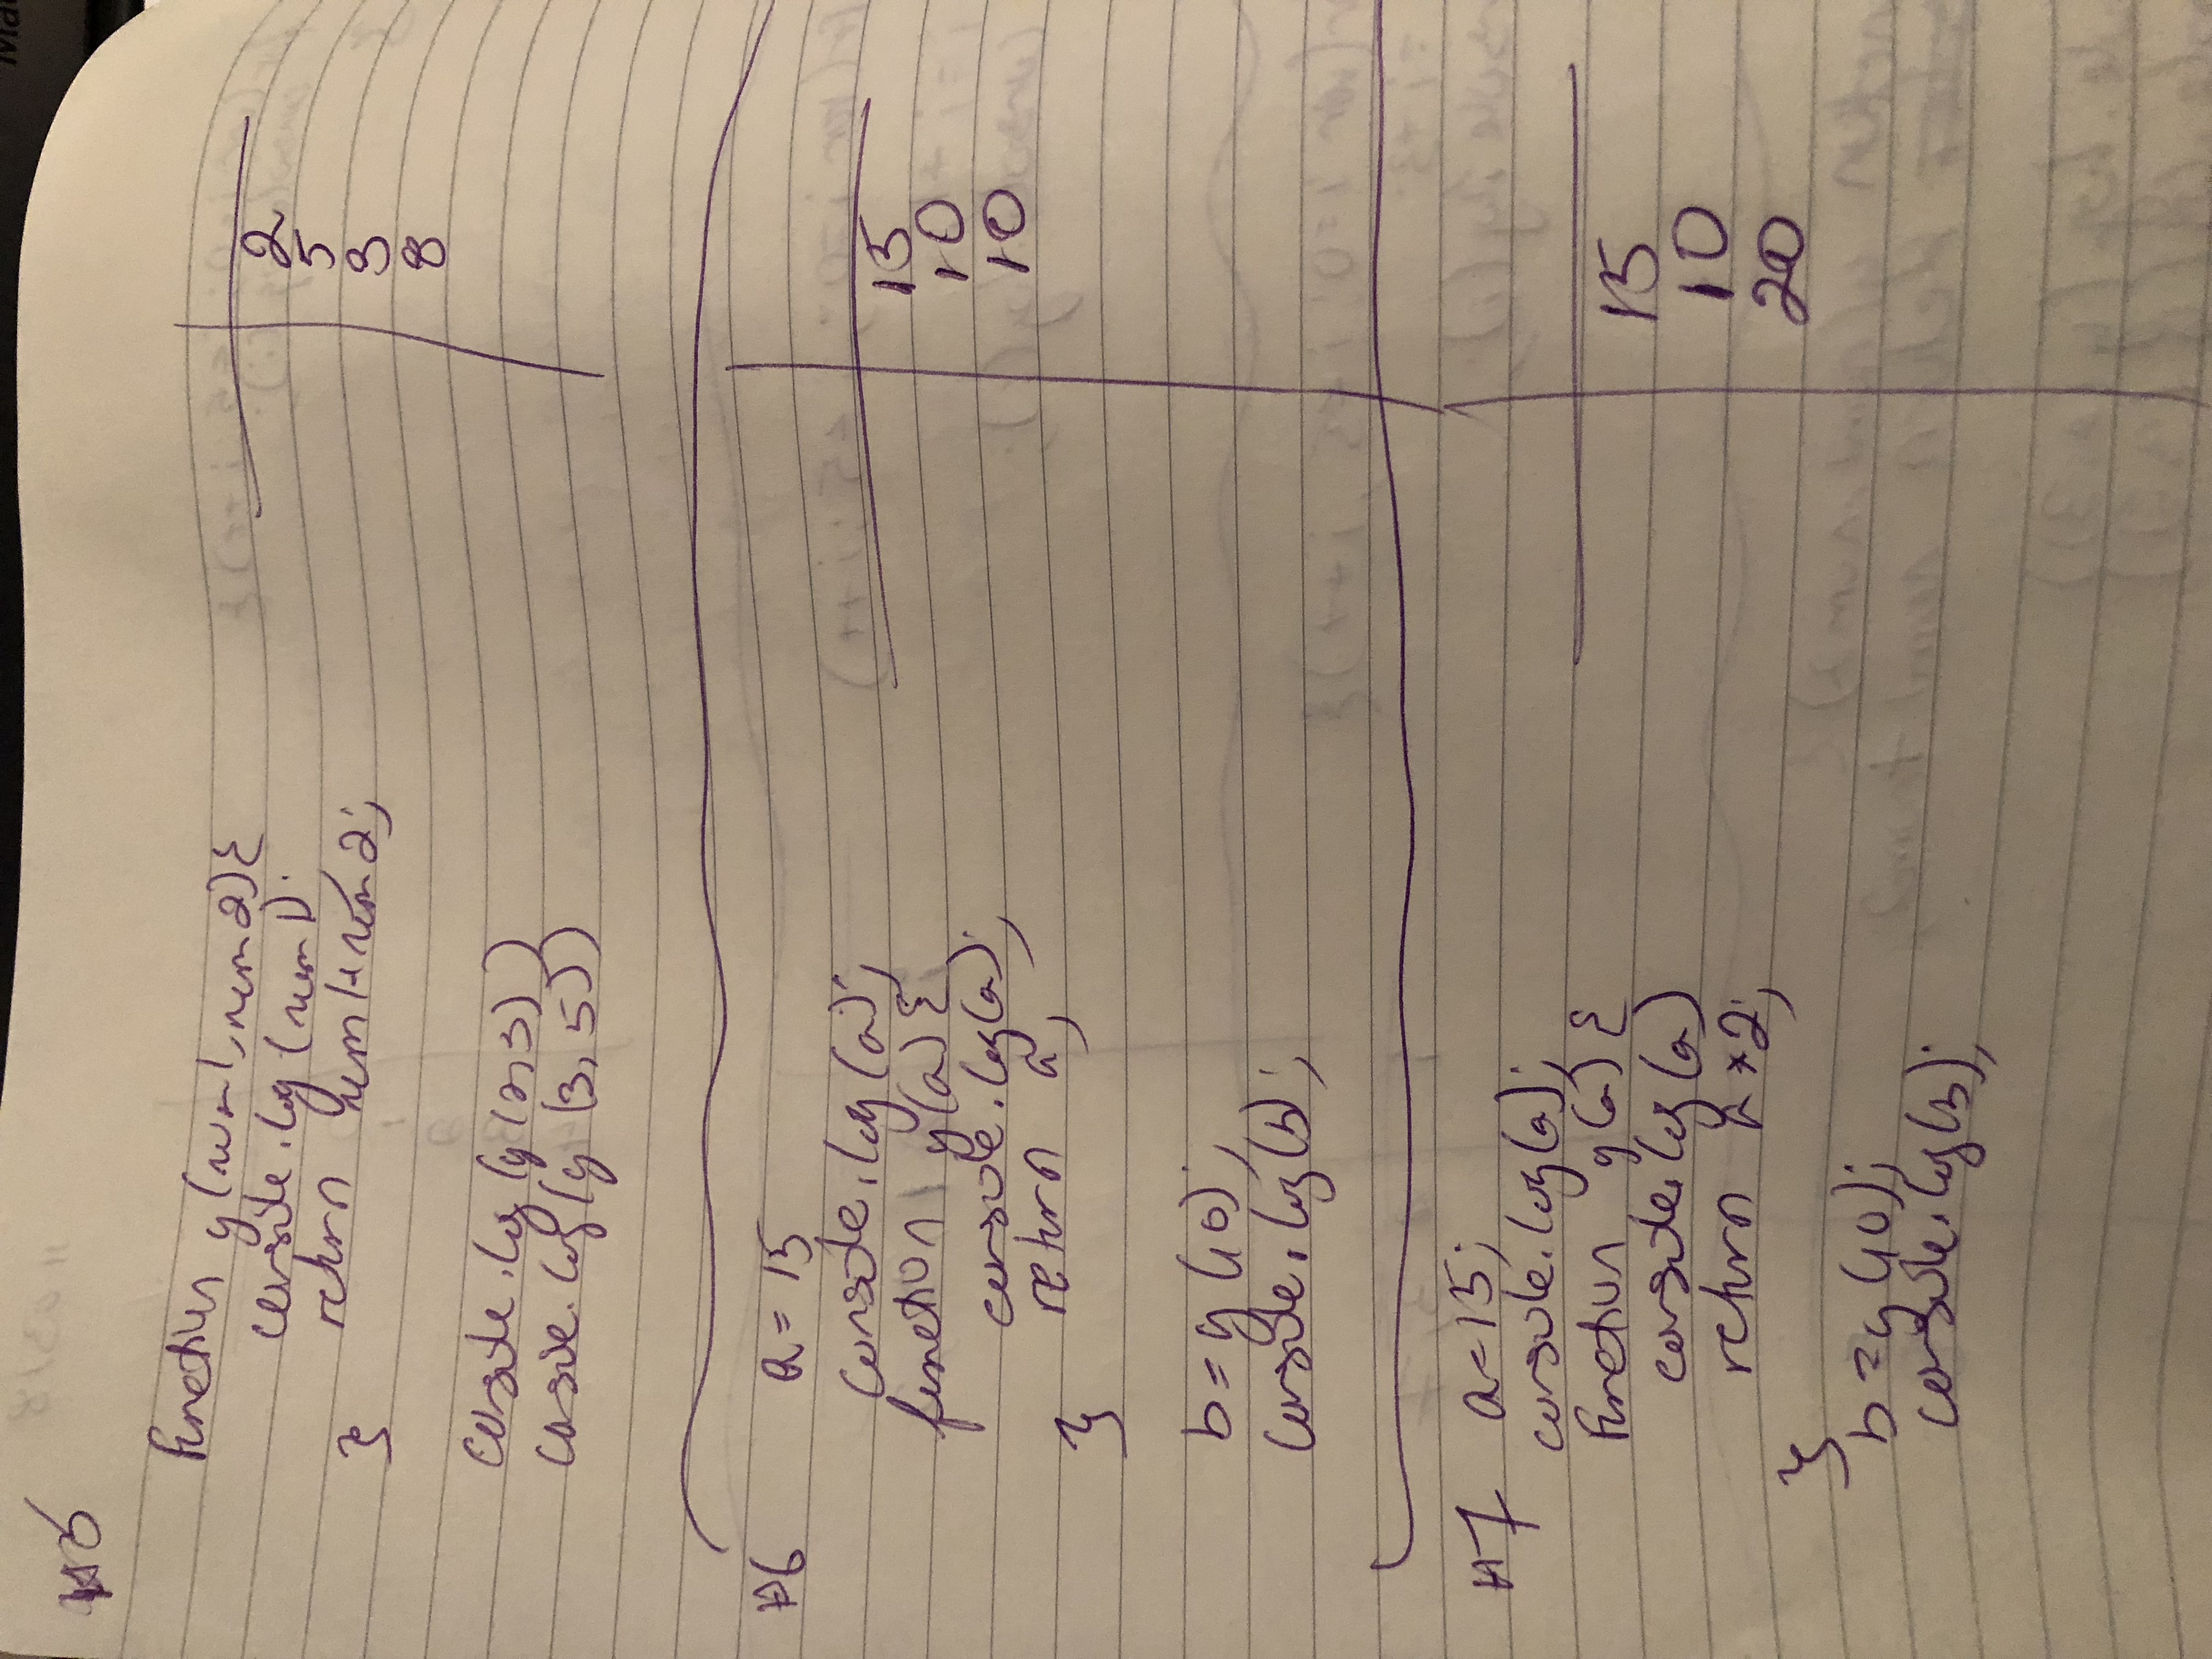 Ma
#5
function y(num1, num2){
console.log(num1);
return num1+num2;
}
console.log(y(2,3))
console.log(y(3,5))
2
5
3
8
#6
a = 15
console.log(a);
function y(a) {
console.log(a);
return a;
}
b = y(10);
console.log(b);
15
10
10
#7
a=15;
console.log(a);
function y(a) {
console.log(a)
return a*2;
}
b = y(10);
console.log(b);
15
10
20